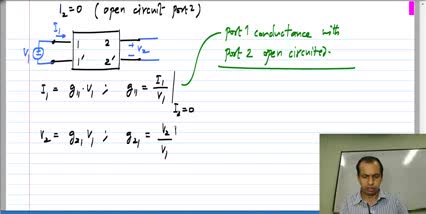 I₂=0 (open circuit port 2)
I₁
V₁
1
2
1'
2'
+
V₂
-
port 1 conductance with
port 2 open circuited.
I₁ = g₁₁·V₁ ; g₁₁ = I₁/V₁ | I₂=0
V₂ = g₂₁ V₁ ; g₂₁ = V₂/V₁ |